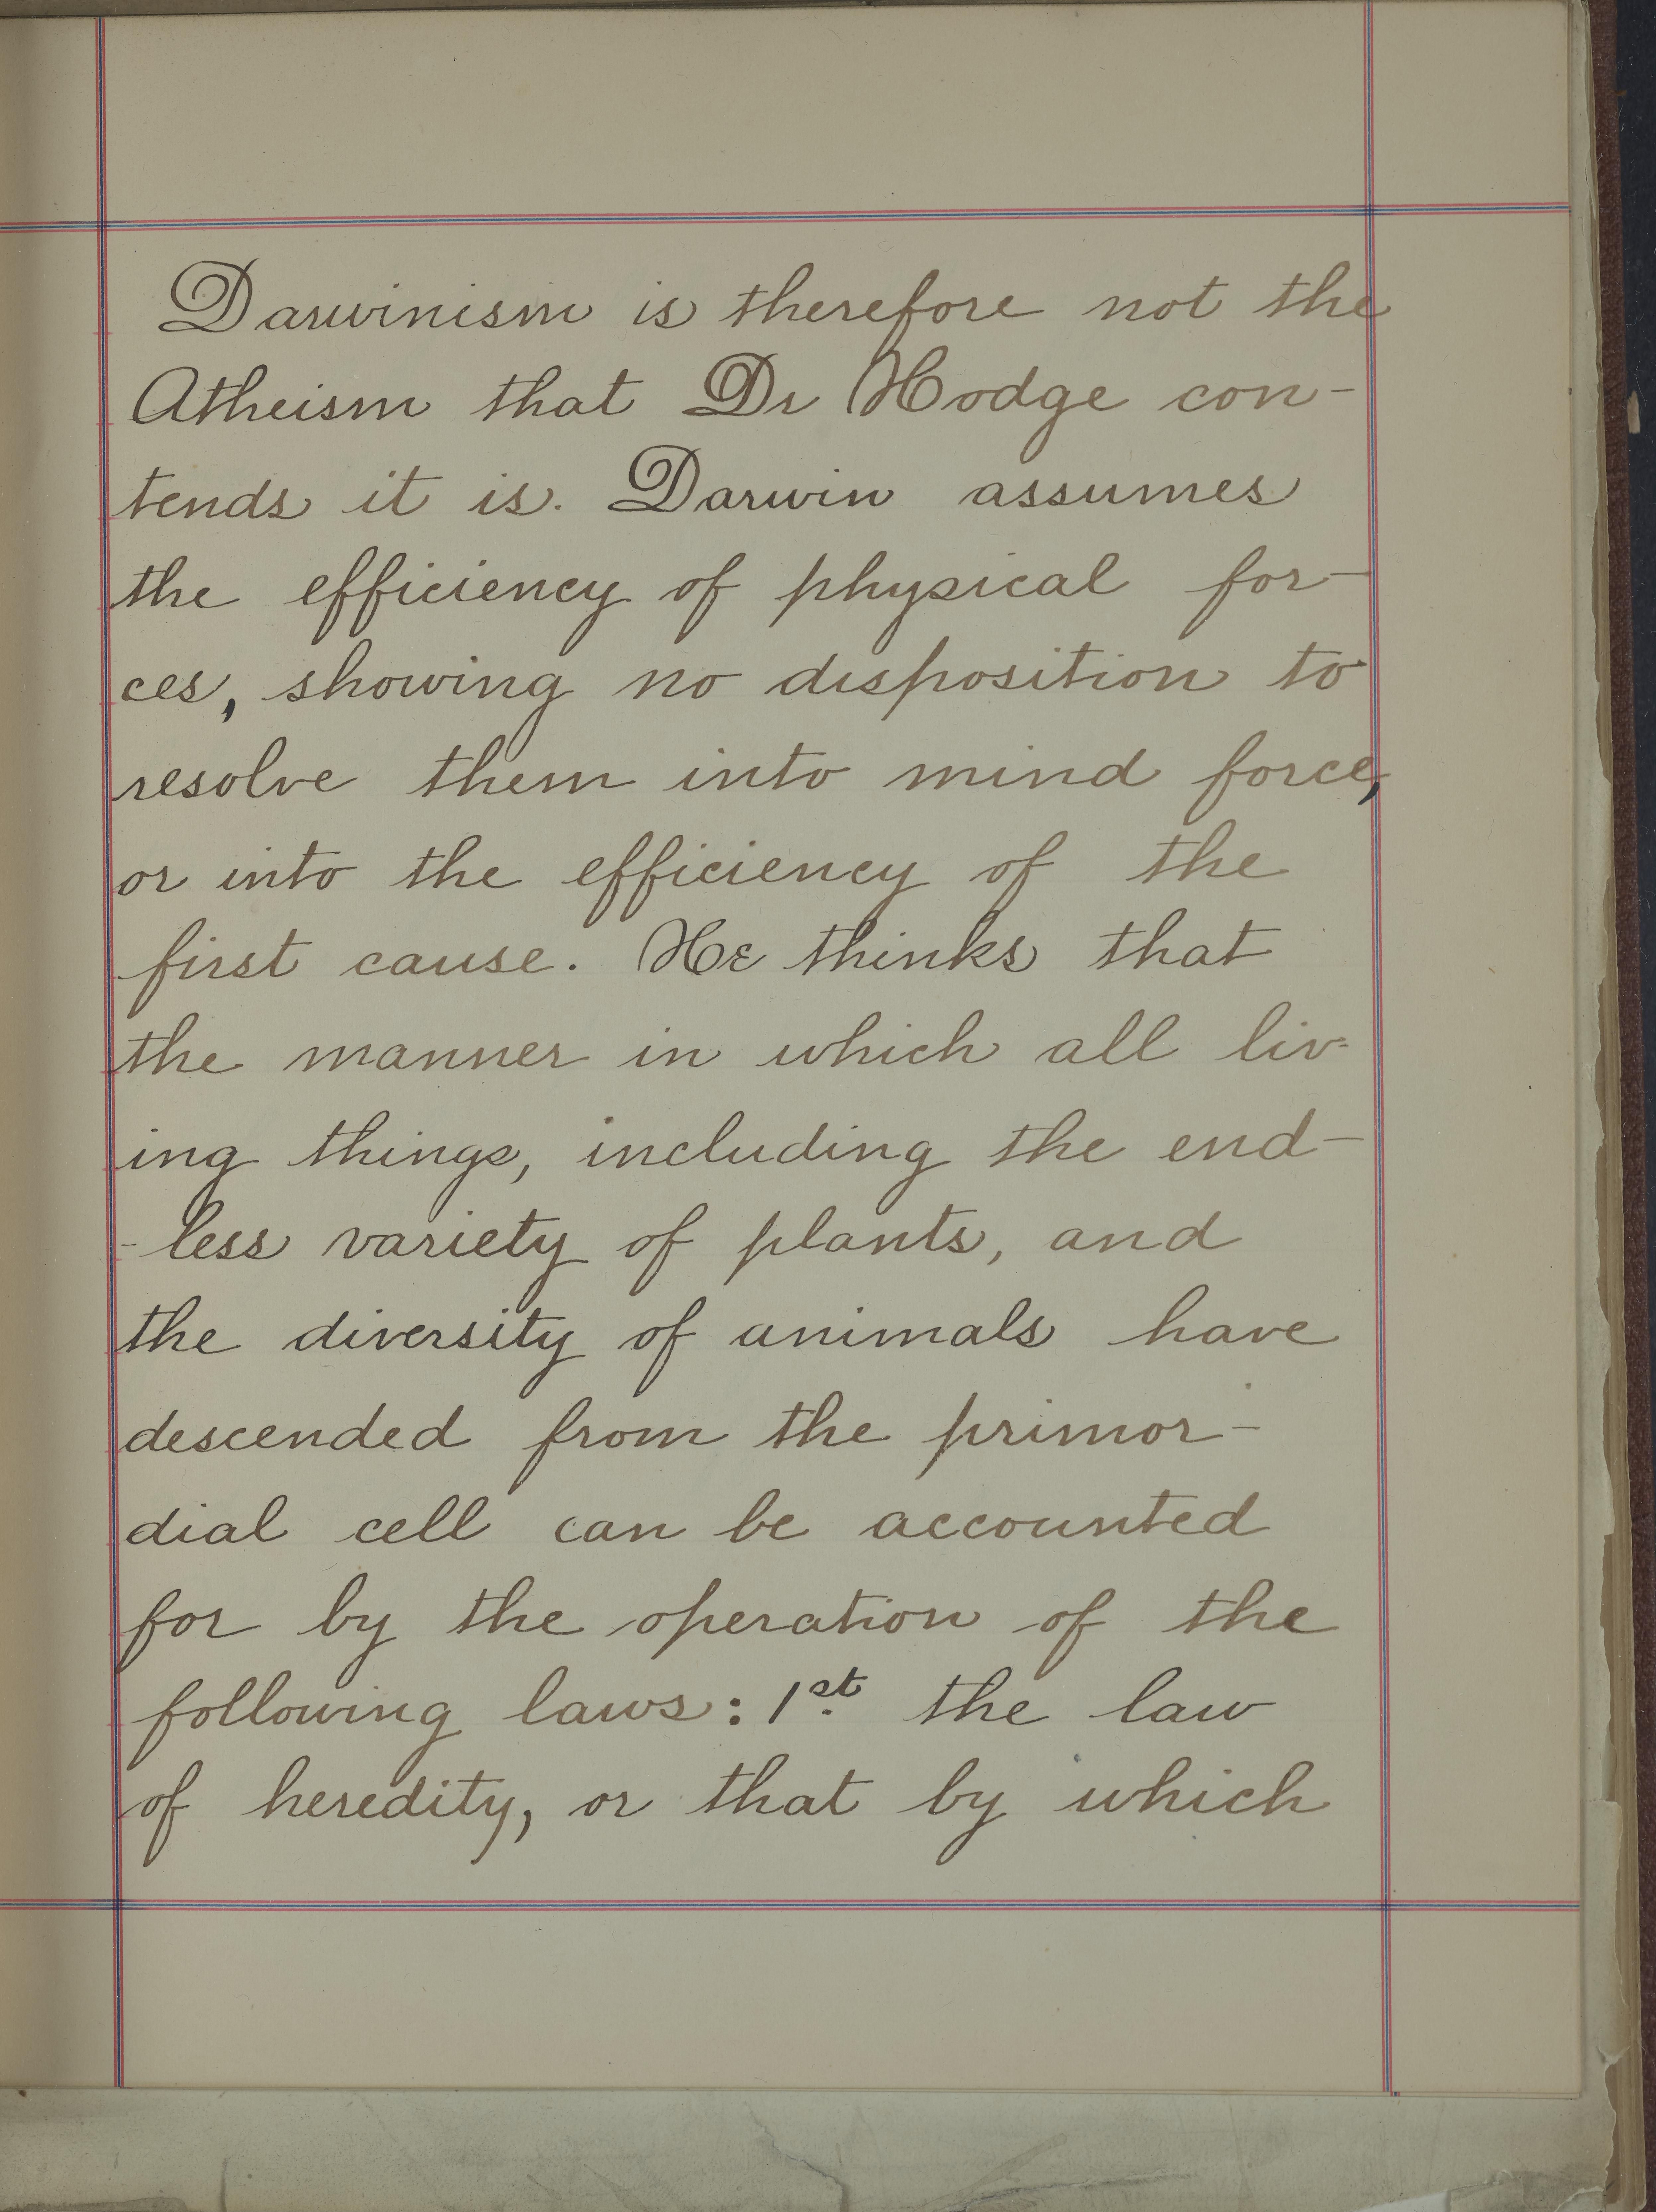 Darwinism is therefore not the
Atheism that Dr Hodge con-
tends it is. Darwin assumes
the efficiency of physical for-
ces, showing no disposition to
resolve them into mind force,
or into the efficiency of the
first cause. He thinks that
the manner in which all liv-
ing things, including the end-
-less variety of plants, and
the diversity of animals have
descended from the primor-
dial cell can be accounted
for by the operation of the
following laws: 1st. the law
of heredity, or that by which